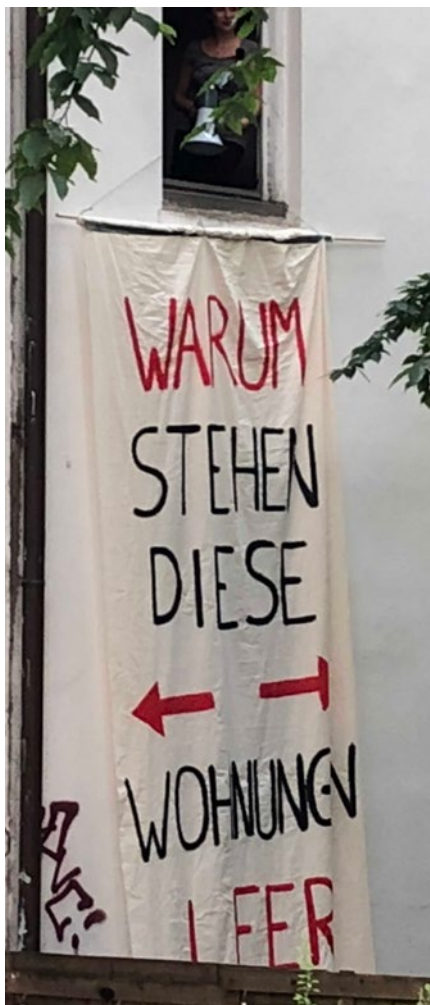 WARUM
STEHEN
DIESE
WOHNUNGEN
LEER